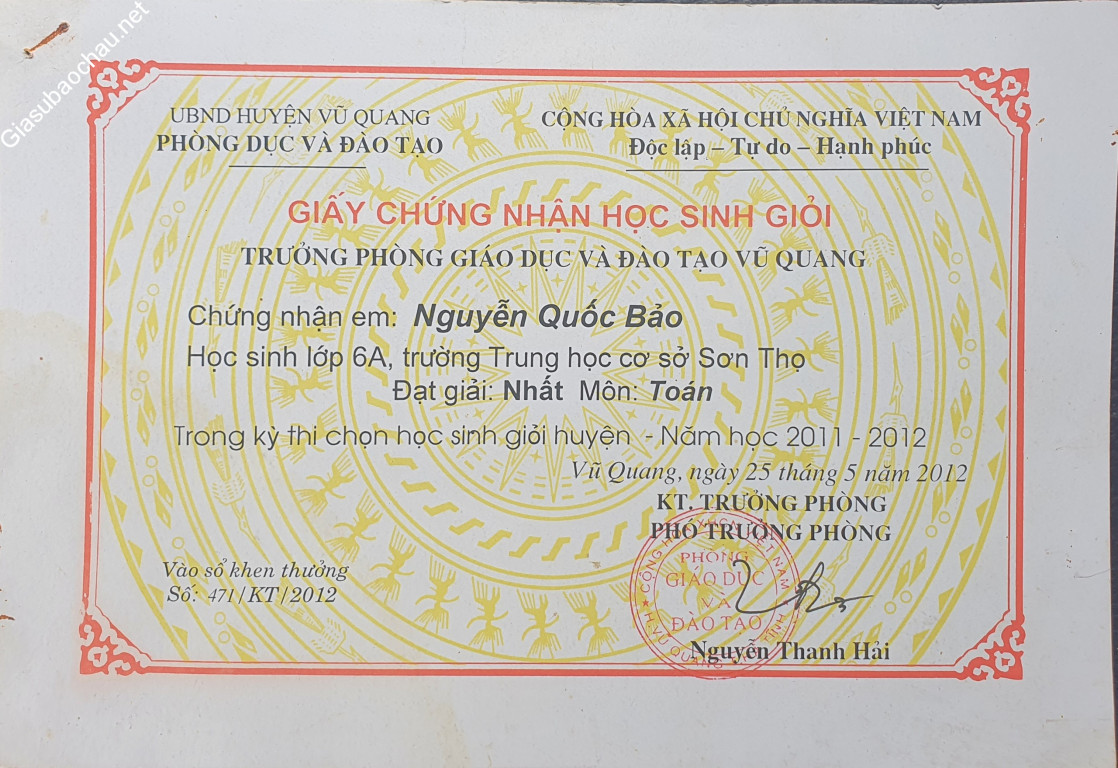 Giasubaochau.net
UBND HUYỆN VŨ QUANG
PHÒNG DỤC VÀ ĐÀO TẠO
CỘNG HÒA XÃ HỘI CHỦ NGHĨA VIỆT NAM
Độc lập – Tự do – Hạnh phúc
GIẤY CHỨNG NHẬN HỌC SINH GIỎI
TRƯỞNG PHÒNG GIÁO DỤC VÀ ĐÀO TẠO VŨ QUANG
Chứng nhận em: Nguyễn Quốc Bảo
Học sinh lớp 6A, trường Trung học cơ sở Sơn Thọ
Đạt giải: Nhất Môn: Toán
Trong kỳ thi chọn học sinh giỏi huyện - Năm học 2011 - 2012
Vũ Quang, ngày 25 tháng 5 năm 2012
KT. TRƯỞNG PHÒNG
PHÓ TRƯỞNG PHÒNG
Vào sổ khen thưởng
Số: 471/KT/2012
PHÒNG
GIÁO DỤC
VÀ
ĐÀO TẠO
H.VŨ QUANG
Nguyễn Thanh Hải